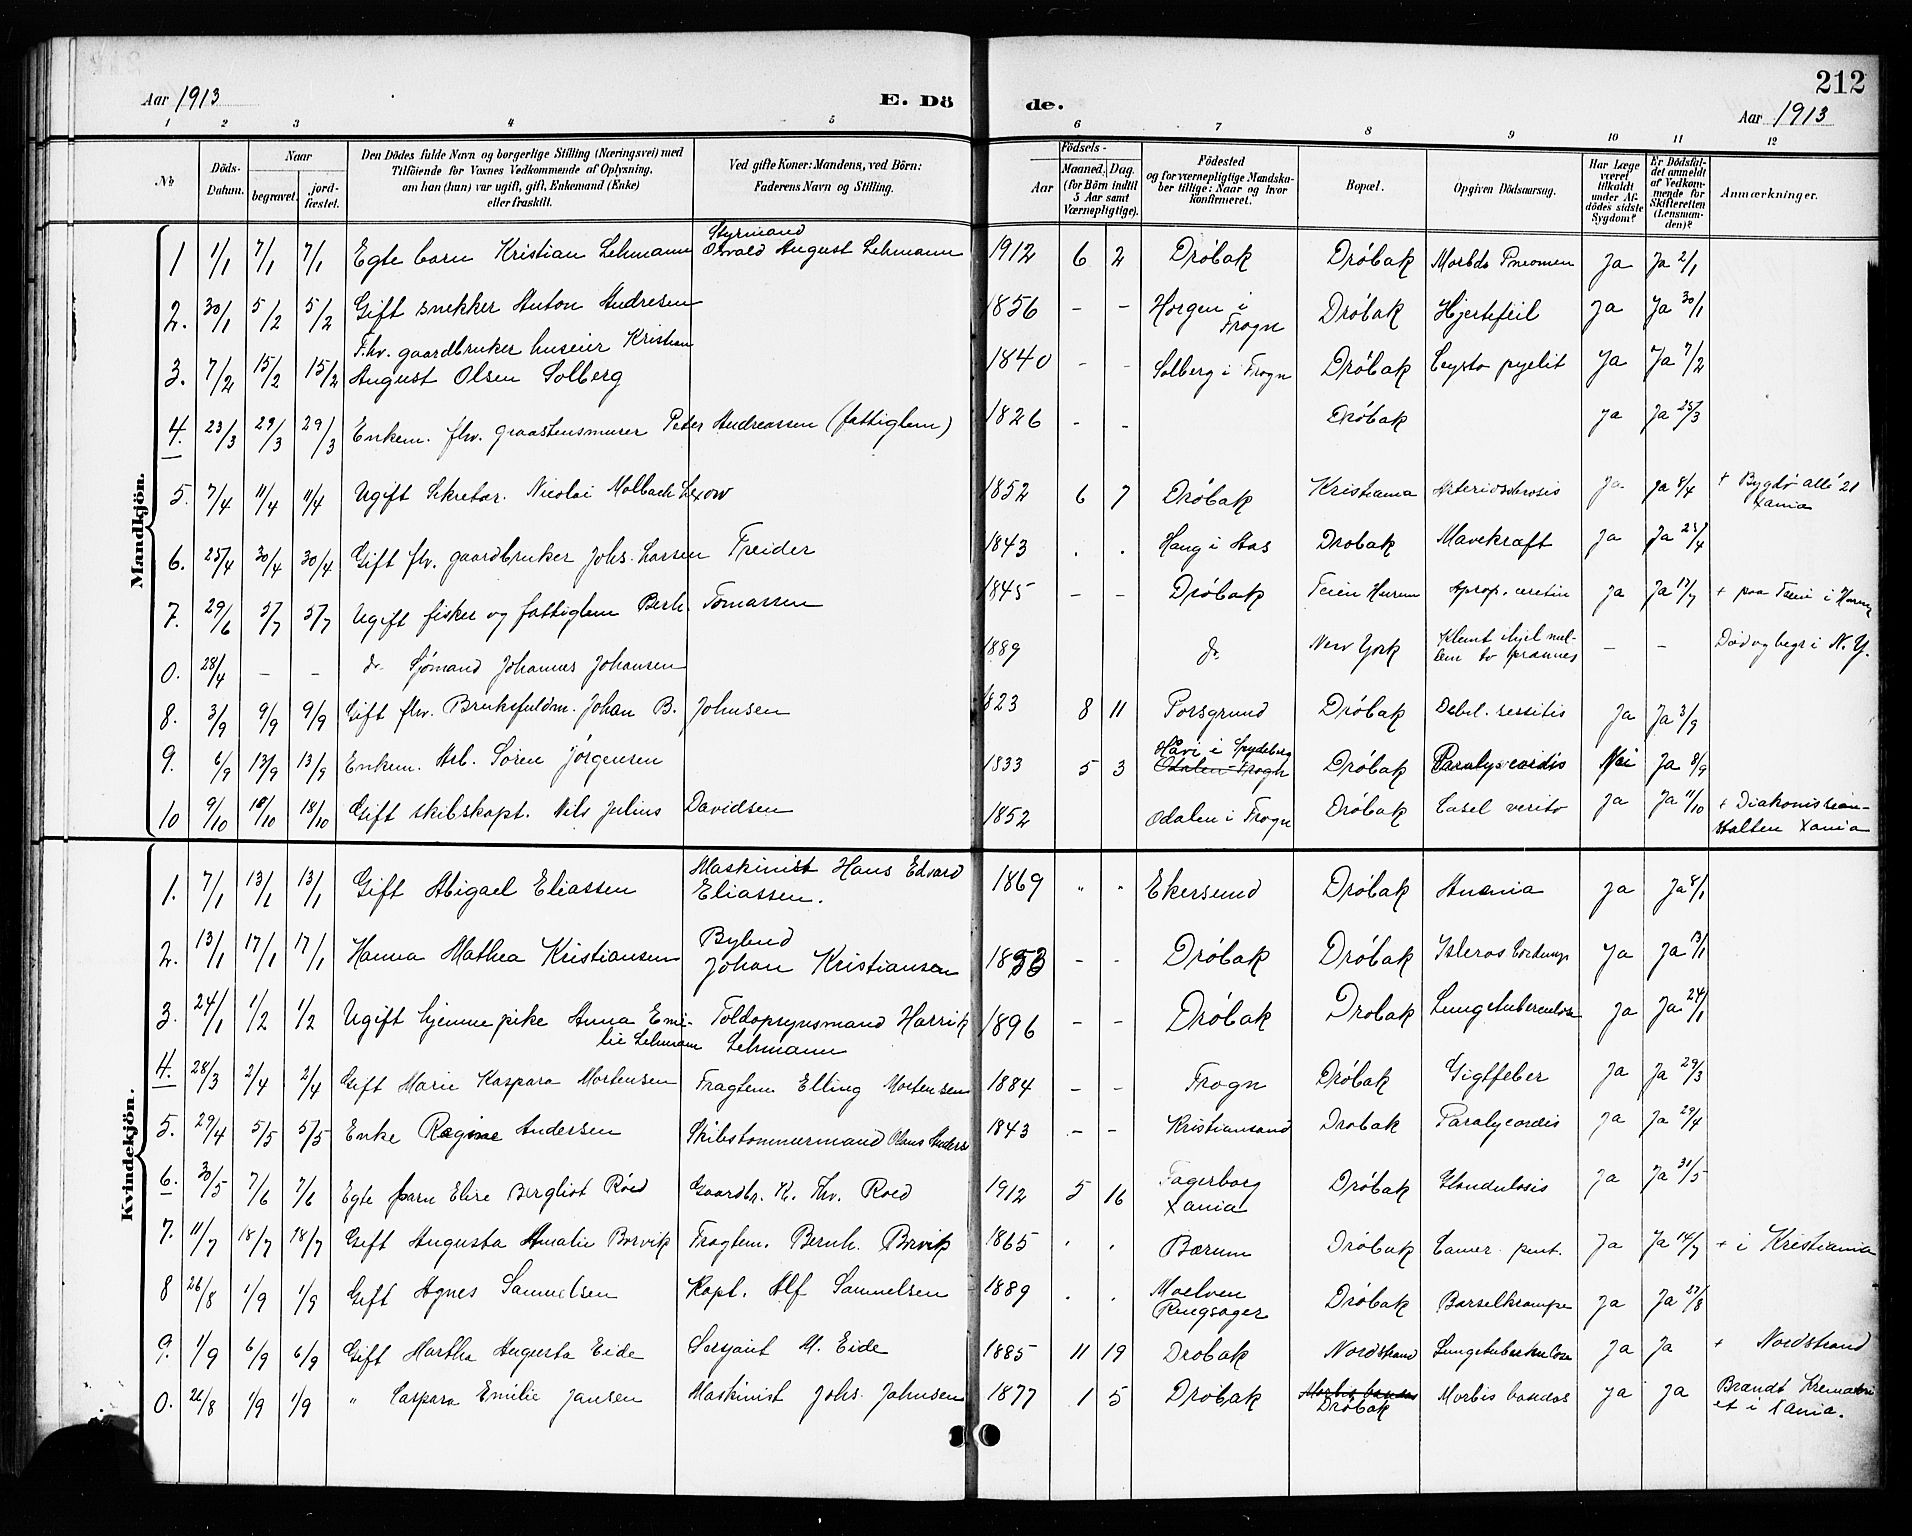 212
Aar 1913
E. Dö
de.
Aar 1913
1 2 3 4 5 6 7 8 9 10 11 12
No
Döds-Datum.
Naar
begravet.
jord-fæstet.
Den Dödes fulde Navn og borgerlige Stilling (Næringsvei) med
Tilföiende for Voxnes Vedkommende af Oplysning,
om han (hun) var ugift, gift, Enkemand (Enke)
eller fraskilt.
Ved gifte Koner: Mandens, ved Börn:
Faderens Navn og Stilling.
Födsels-
Aar
Maaned. Dag.
(for Börn indtil
5 Aar samt
Værnepligtige).
Födested
og for værnepligtige Mandska-
ber tillige: Naar og hvor
konfirmeret.
Bopæl.
Opgiven Dödsaarsag.
Har Læge
været
tilkaldt
under Af-
dödes sidste
Sygdom?
Er Dödsfal-
det anmeldt
af Vedkom-
mende for
Skifteretten
(Lensman-
den)?
Anmærkninger.
Mandkjön.
1 1/1 7/1 7/1 Egte barn Kristian Lehmann Styrmand Osvald August Lehmann 1912 6 2 Dröbak Dröbak Ja Ja 2/1
2. 30/1 5/2 5/2 Gift snekker Anton Andresen 1856 – – Horgen i Frogn Dröbak Hjertefeil Ja Ja 30/1
3. 7/2 15/2 15/2 Fhv. gaardbruker huseier Kristian August Olsen Solberg 1840 – – Solberg i Frogn Dröbak Cysto pyelit Ja Ja 7/2
4. 23/3 29/3 29/3 Enkem. fhv. graastensmurer Peter Andreassen (fattiglem) 1826 – – Dröbak Ja Ja 25/3
5. 7/4 11/4 11/4 Ugift Sekretær. Nicolai Molbach Lexow 1852 6 7 Dröbak Kristiania Ja Ja 8/4 + Bygdö allé 21 Xania
6. 25/4 30/4 30/4 Gift fhv. gaardbruker Johs. Larsen Treider 1843 . . Haug i Aas Drobak Mavekræft Ja Ja 25/4
7. 29/6 5/7 5/7 Ugift fisker og fattiglem Berh. Tomassen 1845 – – Dröbak Teien Hurum Ja Ja 17/7 + paa Teien i Hurum
0. 28/4 – – do Sjömand Johannes Johansen 1889 do New York Klemt ihjel – – Död og begr i N. Y.
8. 3/9 9/9 9/9 Gift fhv. Bruksfuldm. Johan B. Johnsen 1823 8 11 Porsgrund Dröbak Ja Ja 3/9
9. 6/9 13/9 13/9 Enkem. Arb. Sören Jörgensen 1833 5 3 Haavi i Spydeberg Odalen Frogn Dröbak Paralys cordis Nei Ja 8/9
10 9/10 18/10 18/10 Gift skibskapt. Nils Julius Davidsen 1852 Odalen i Frogn Dröbak Ja Ja 11/10 + Diakonissean-stalten Xania
Kvindekjön.
1. 7/1 13/1 13/1 Gift Abigael Eliassen Maskinist Hans Edvard Eliassen. 1869 " " Ekersund Dröbak Anæmia Ja Ja 8/1
2. 13/1 17/1 17/1 Hanna Mathea Kristiansen Bybud Johan Kristiansen 1853 – – Dröbak Dröbak Ja Ja 13/1
3. 24/1 1/2 1/2 Ugift hjemme pike Anna Emi-lie Lehmann Toldopsynsmand Harrik Lehmann 1896 – – Dröbak Drobak Lungetuberculose Ja Ja 24/1
4. 28/3 2/4 2/4 Gift Marie Kaspara Mortensen Fragtem Elling Mortensen 1884 – – Frogn Dröbak Gigtfeber Ja Ja 29/3
5. 29/4 5/5 5/5 Enke Regine Andersen Skibstømmermand Olaus Anders 1843 – – Kristiansand Drobak Paralycordis Ja Ja 29/4
6. 30/5 7/6 7/6 Egte barn Elire Bergliot Röed Gaardbr. K. Thv. Roed 1912 5 16 Fagerborg Xania Dröbak Ja Ja 31/5
7. 11/7 18/7 18/7 Gift Augusta Amalie Borvik Fragtem. Bernh. Borvik 1865 . . Bærum Dröbak Ja Ja 14/7 + i Kristiania
8 26/8 1/9 1/9 Gift Agnes Samuelsen Kapt. Alf Samuelsen 1889 . . Moelven Ringsager Dröbak Barselkrampe Ja Ja 27/8
9. 1/9 6/9 6/9 Gift Martha Augusta Eide Serjant M. Eide 1885 11 19 Drobak Nordstrand Lungetuberkulose Ja Ja + Nordstrand
0. 26/8 1/9 1/9 " Caspara Emilie Jansen Maskinist Johs. Johnsen 1877 1 5 Dröbak Dröbak Ja Ja Brændt Kremato et i Xania.